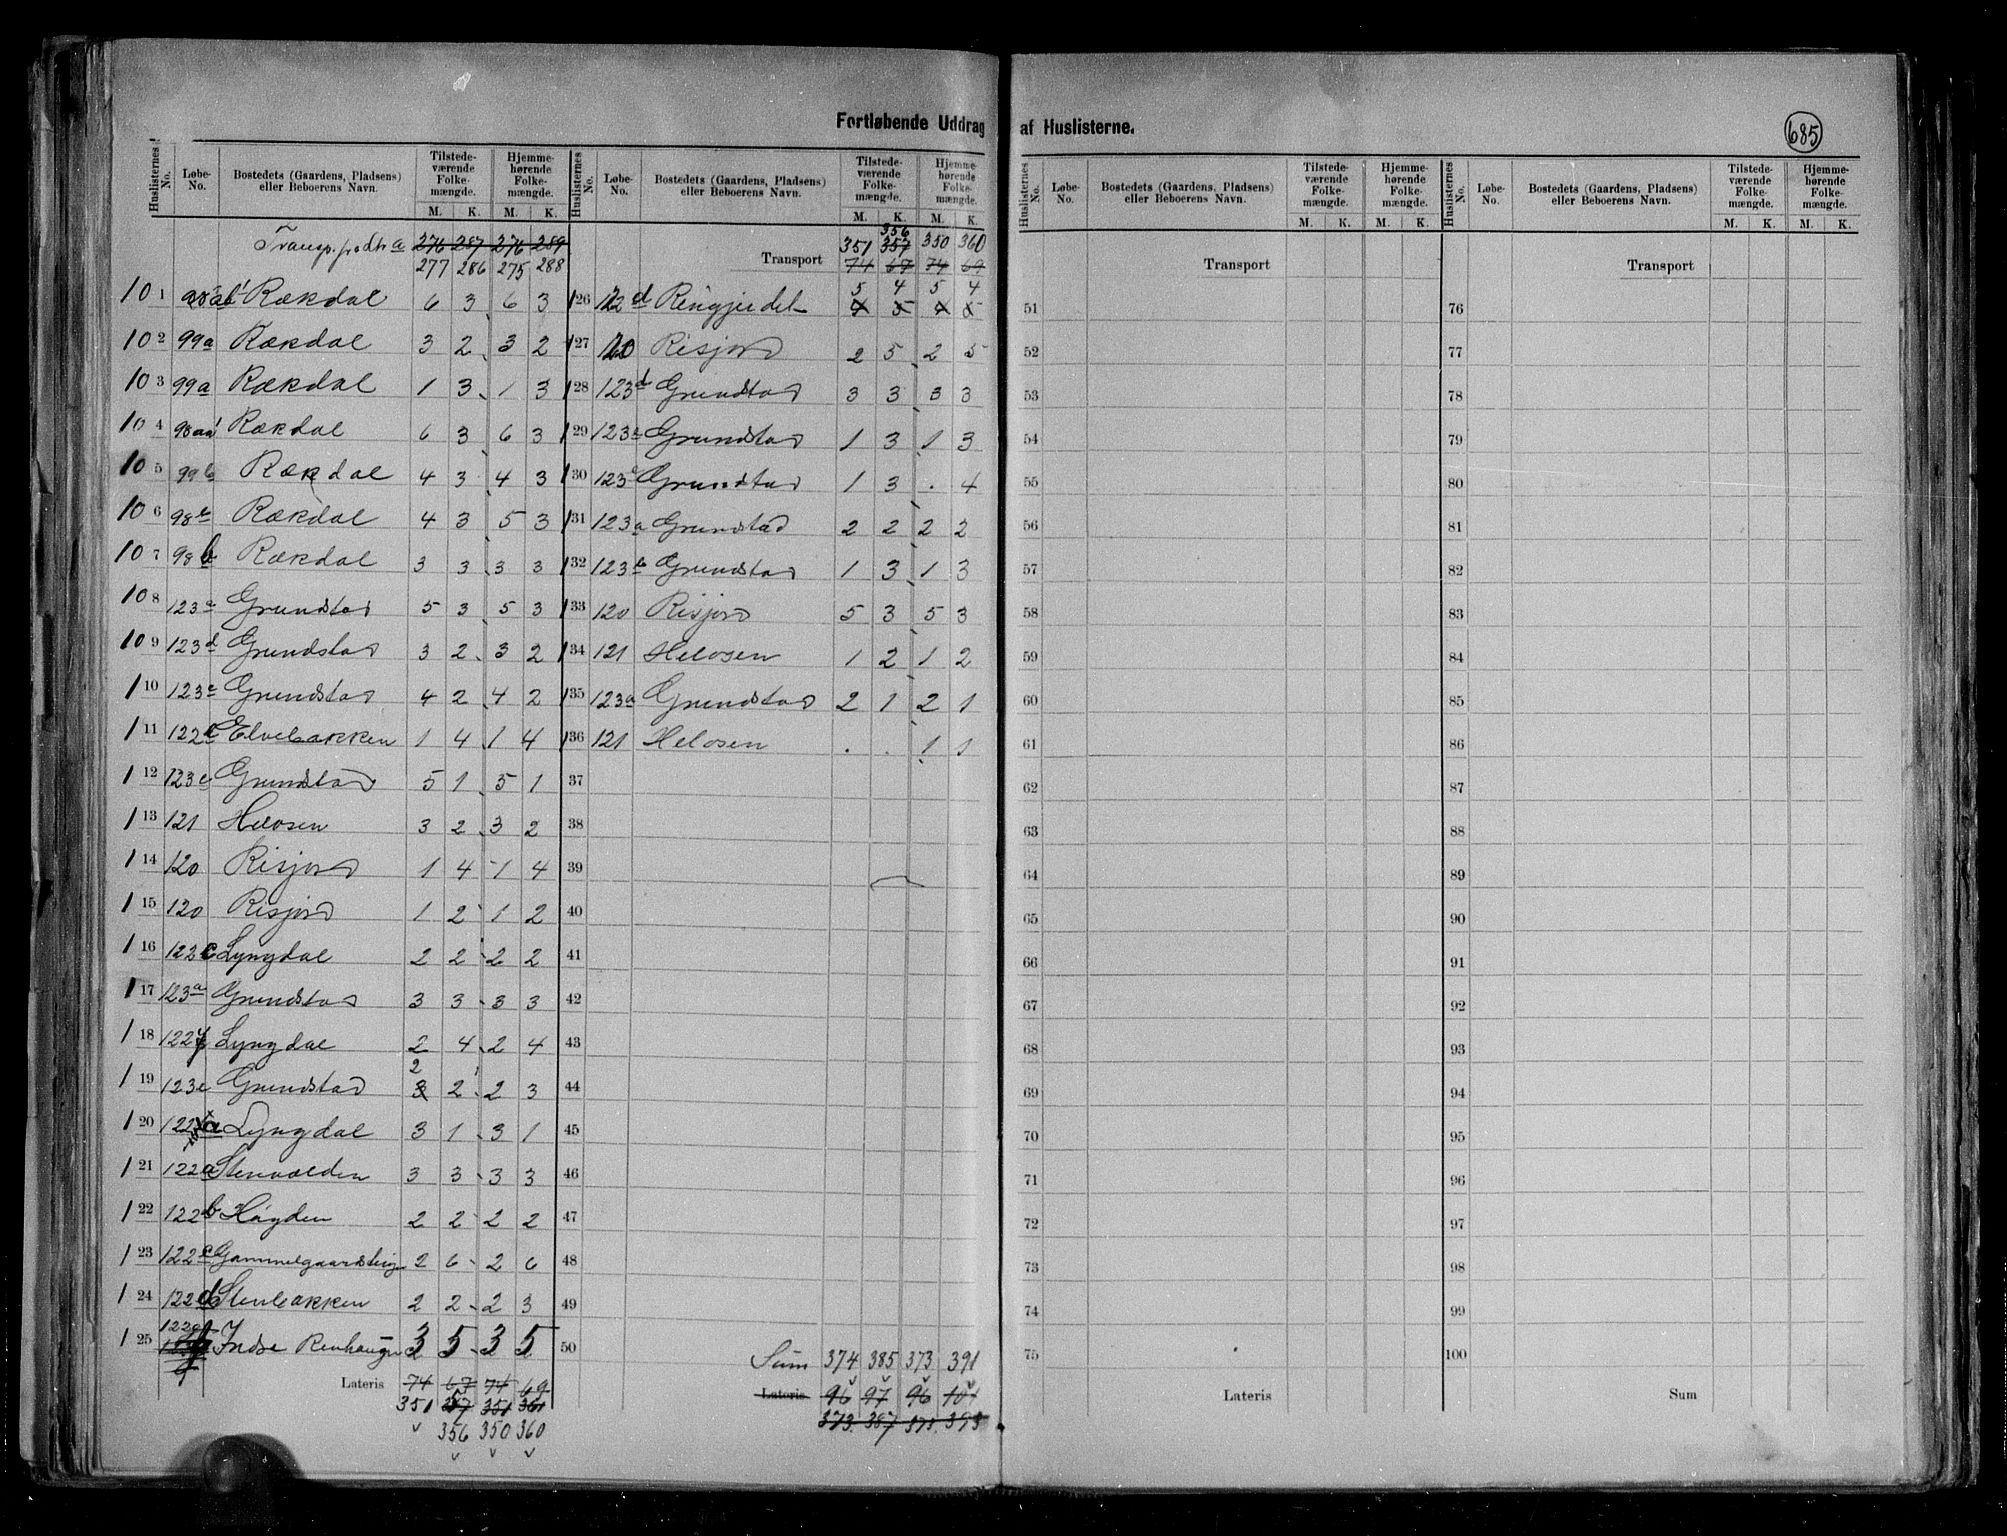 Fortløbende Uddrag af Huslisterne.
685
Huslisternes No. Løbe-No. Bostedets (Gaardens, Pladsens) eller Beboerens Navn. Tilstedeværende Folkemængde. M. K. Hjemmehørende Folkemængde. M. K.
Transp. fra 276 287 276 289
277 286 275 288
101 Rækdal 6 3 6 3
102 99a Rækdal 3 2 3 2
103 99a Rækdal 1 3 1 3
104 98aa1 Rækdal 6 3 6 3
105 99b Rækdal 4 3 4 3
106 98c Rækdal 4 3 5 3
107 98b Rækdal 3 3 3 3
108 123a Grundstad 5 3 5 3
109 123d Grundstad 3 2 3 2
110 123c Grundstad 4 2 4 2
111 122 Elvebakken 1 4 1 4
112 123c Grundstad 5 1 5 1
113 121 Helosen 3 2 3 2
114 120 Risjord 1 4 1 4
115 120 Risjord 1 2 1 2
116 122c Lyngdal 2 2 2 2
117 123a Grundstad 3 3 3 3
118 122f Lyngdal 2 4 2 4
2
119 123c Grundstad 3 2 2 3
120 122a Lyngdal 3 1 3 1
121 122a Stenvolden 3 3 3 3
122 122b Høyden 2 2 2 2
123 122c Gammelgaardsting 2 6 2 6
124 122d Stenbakken 2 2 2 3
125 Indre Renhaugen 3 5 3 5
Lateris 74 67 74 69
351 357 351 361
356 350 360
Huslisternes No. Løbe-No. Bostedets (Gaardens, Pladsens) eller Beboerens Navn. Tilstedeværende Folkemængde. M. K. Hjemmehørende Folkemængde. M. K.
356
351 357 350 360
Transport 74 67 74 69
5 4 5 4
126 122d Ringjerdet 4 5 4 5
127 120 Risjord 2 5 2 5
128 123d Grundstad 3 3 3 3
129 123a Grundstad 1 3 1 3
130 123c Grundstad 1 3 . 4
131 123a Grundstad 2 2 2 2
132 123b Grundstad 1 3 1 3
133 120 Risjord 5 3 5 3
134 121 Helosen 1 2 1 2
135 123a Grundstad 2 1 2 1
136 121 Helosen . . 1 1
37
38
39
40
41
42
43
44
45
46
47
48
49
50
Sum 374 385 373 391
Lateris 96 97 96 101
373 387 373 393
Huslisternes No. Løbe-No. Bostedets (Gaardens, Pladsens) eller Beboerens Navn. Tilstedeværende Folkemængde. M. K. Hjemmehørende Folkemængde. M. K.
Transport
51
52
53
54
55
56
57
58
59
60
61
62
63
64
65
66
67
68
69
70
71
72
73
74
75
Lateris
Huslisternes No. Løbe-No. Bostedets (Gaardens, Pladsens) eller Beboerens Navn. Tilstedeværende Folkemængde. M. K. Hjemmehørende Folkemængde. M. K.
Transport
76
77
78
79
80
81
82
83
84
85
86
87
88
89
90
91
92
93
94
95
96
97
98
99
100
Sum